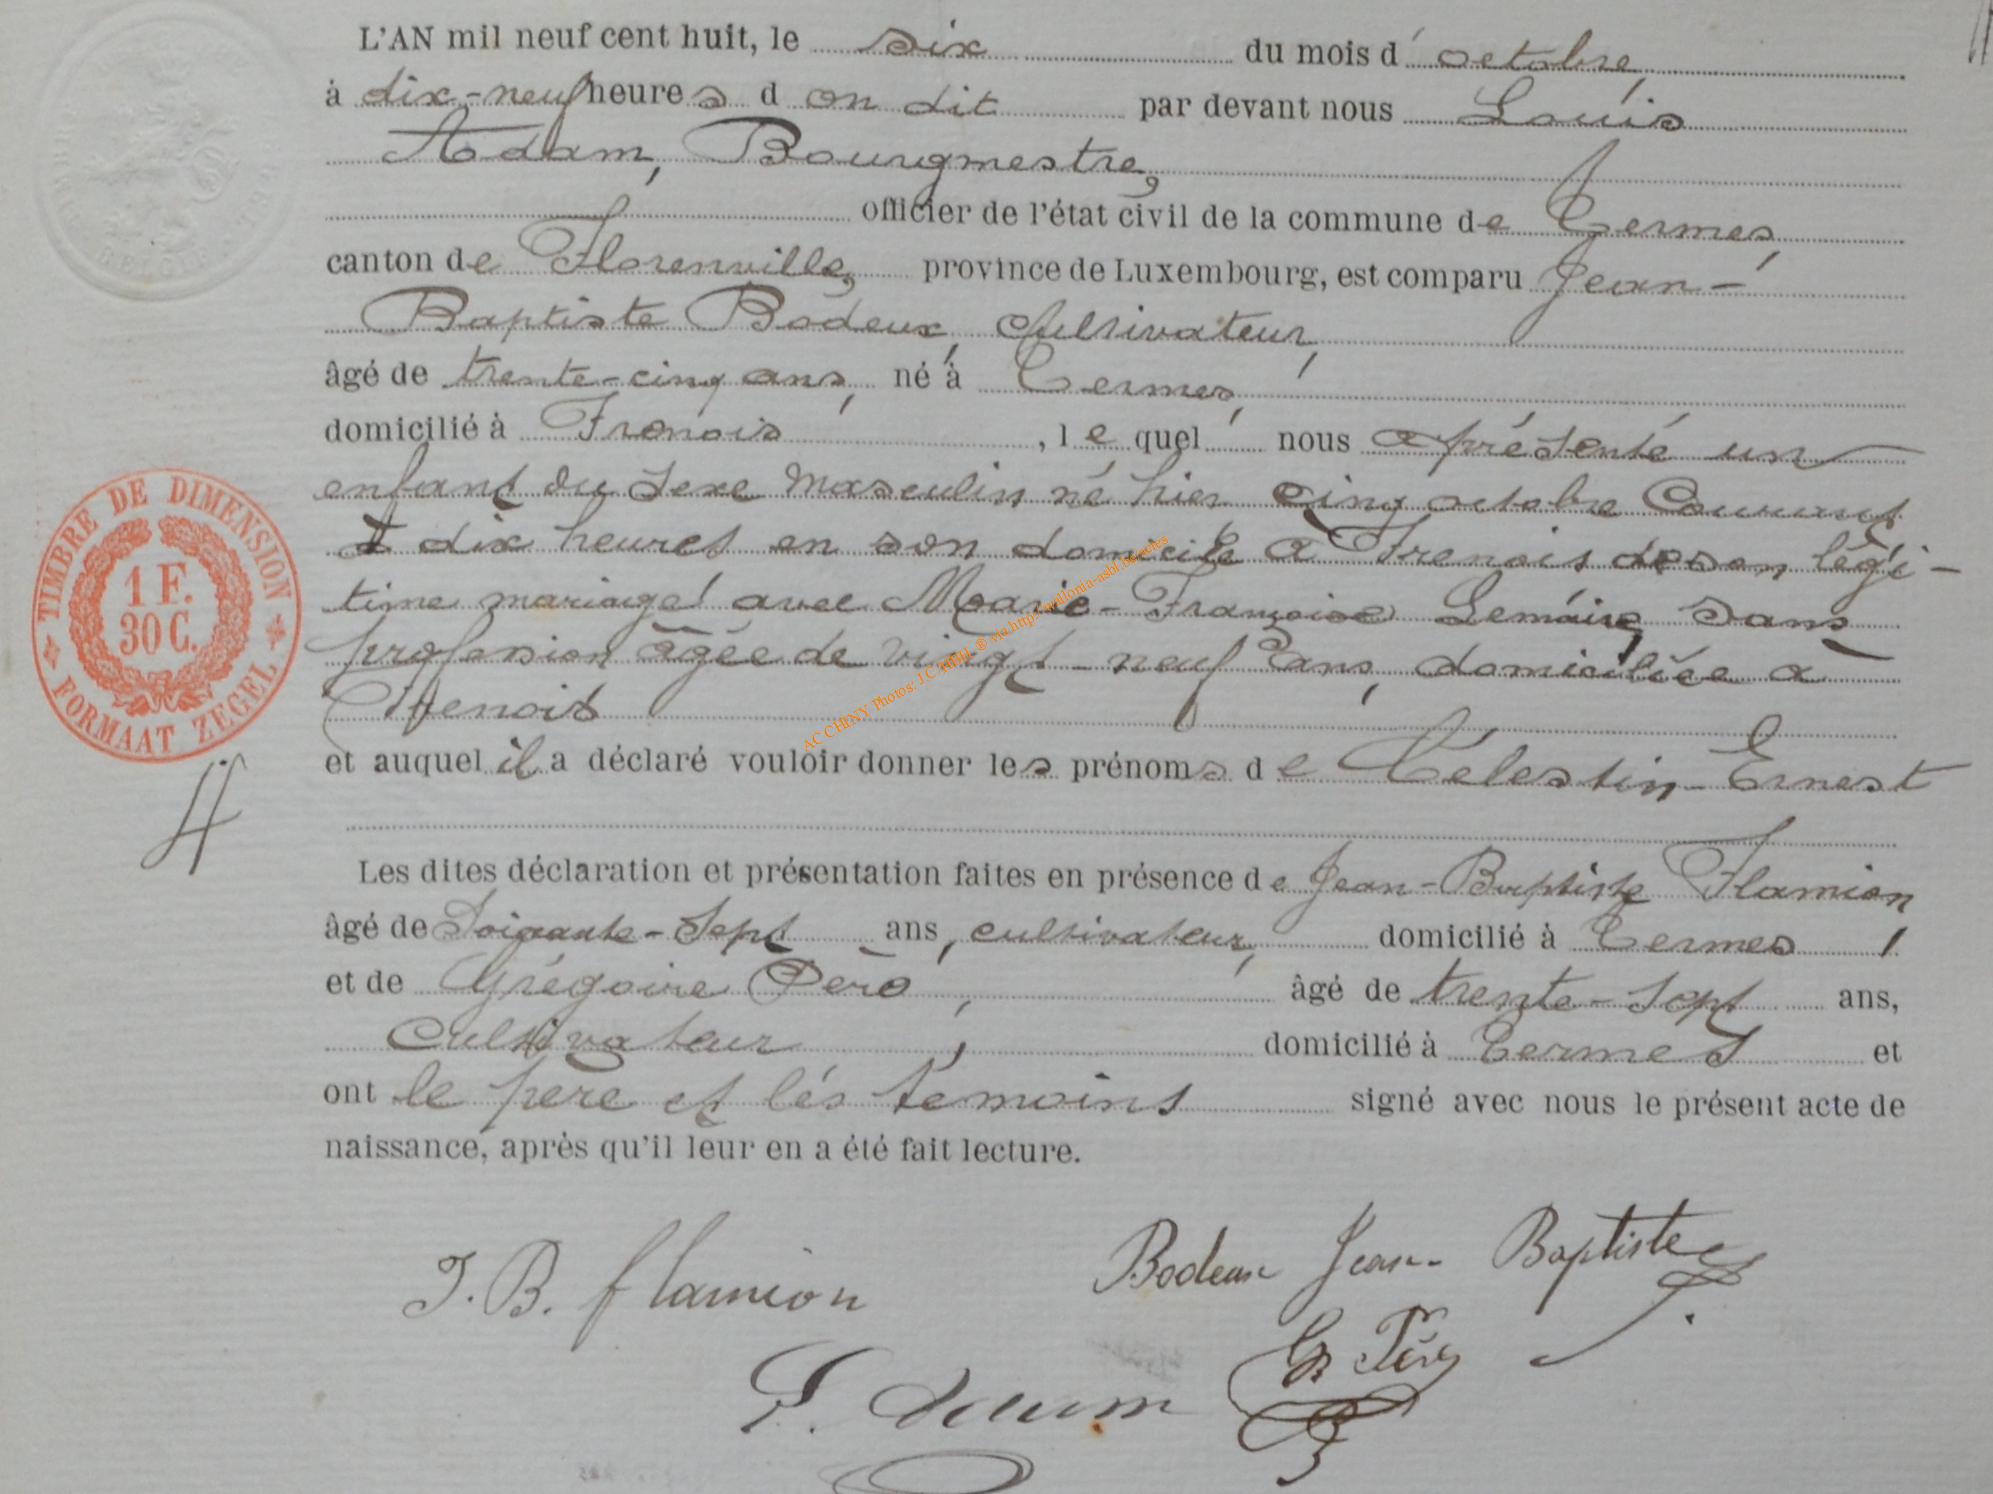 L'AN mil neuf cent huit, le six du mois d'octobre,
à dix-neuf heures d on dit par devant nous Louis
Adam, Bourgmestre,
officier de l'état civil de la commune de Termes,
canton de Florenville, province de Luxembourg, est comparu Jean-
Baptiste Bodeux, Cultivateur,
âgé de trente-cinq ans, né à Termes,
domicilié à Frenois, lequel nous a présenté un
enfant du sexe masculin né hier cinq octobre Courant
à dix heures en son domicile à Frenois de son légi-
time mariage avec Marie-Françoise Lemaire, sans
profession âgée de vingt-neuf ans, domiciliée à
Frenois
et auquel il a déclaré vouloir donner les prénoms de Célestin-Ernest
Les dites déclaration et présentation faites en présence de Jean-Baptiste Flamion
âgé de Soixante-Sept ans, cultivateur, domicilié à Termes,
et de Grégoire Pero, âgé de trente-sept ans,
Cultivateur, domicilié à Termes et
ont le père et les témoins signé avec nous le présent acte de
naissance, après qu'il leur en a été fait lecture.
J. B. flamion
Bodeux Jean-Baptiste
L. Adam
TIMBRE DE DIMENSION
1 F.
30 C.
FORMAAT ZEGEL